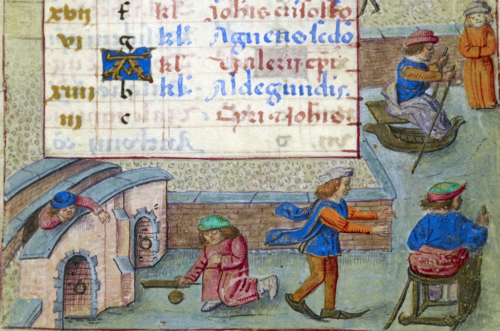 xvij f kl' Johis crisosto
vi g kl' Agnetis scdo
A kl' Valerii epi
xiiij b kl' Aldegundis.
iij c Cyri ⁊ Johis.